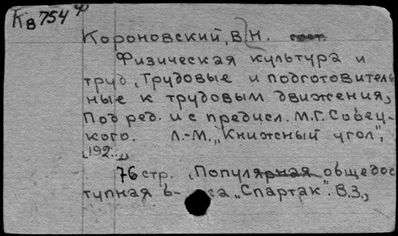 Кв 754 ф
Короновский, В.Н.
Физическая культура и
труд, Трудовые и подготовитель
ные к трудовым движения,
Под ред. и с предисл. М.Г. Собец-
кого. Л.-М., "Книжный угол",
192...,
76 стр. (Популярная общедос
тупная б- ка "Спартак". В.3.,